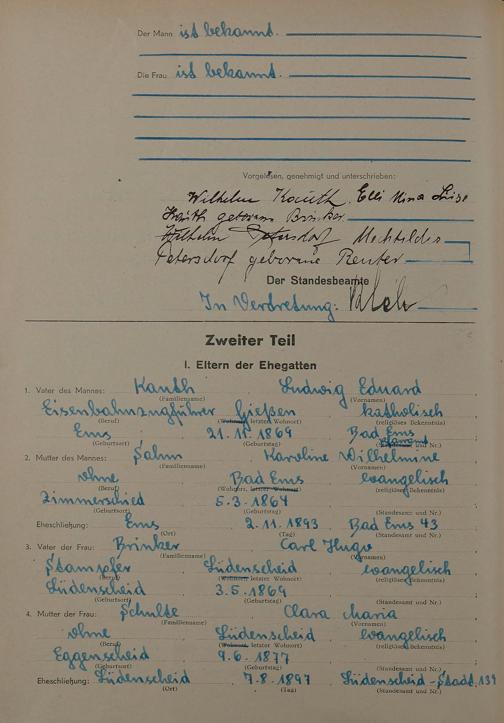 Der Mann ist bekannt.
Die Frau ist bekannt.
Vorgelesen, genehmigt und unterschrieben:
Wilhelm Kauth, Elli Mina Luise
Kauth geborene Brinker
Wilhelm Petersdorf Mechtildis
Petersdorf geborene Reuter
Der Standesbeamte
In Vertretung:
Zweiter Teil
I. Eltern der Ehegatten
1. Vater des Mannes: Kauth Ludwig Eduard
(Familienname) (Vornamen)
Eisenbahnzugführer Gießen katholisch
(Beruf) (Wohnort, letzter Wohnort) (religiöses Bekenntnis)
Ems 21.11.1869 Bad Ems
(Geburtsort) (Geburtstag) (Standesamt und Nr.)
2. Mutter des Mannes: Karoline Wilhelmine
(Familienname) (Vornamen)
ohne Bad Ems evangelisch
(Beruf) (Wohnort, letzter Wohnort) (religiöses Bekenntnis)
Zimmerschied 5.3.1864
(Geburtsort) (Geburtstag) (Standesamt und Nr.)
Eheschließung: Ems 2.11.1893 Bad Ems 43
(Ort) (Tag) (Standesamt und Nr.)
3. Vater der Frau: Brinker Carl Hugo
(Familienname) (Vornamen)
Stampfer Lüdenscheid evangelisch
(Beruf) (Wohnort, letzter Wohnort) (religiöses Bekenntnis)
Lüdenscheid 3.5.1869
(Geburtsort) (Geburtstag) (Standesamt und Nr.)
4. Mutter der Frau: Schulte Clara Maria
(Familienname) (Vornamen)
ohne Lüdenscheid evangelisch
(Beruf) (Wohnort, letzter Wohnort) (religiöses Bekenntnis)
Eggenscheid 9.6.1877
(Geburtsort) (Geburtstag) (Standesamt und Nr.)
Eheschließung: Lüdenscheid 7.8.1897 Lüdenscheid-Stadt, 139
(Ort) (Tag) (Standesamt und Nr.)